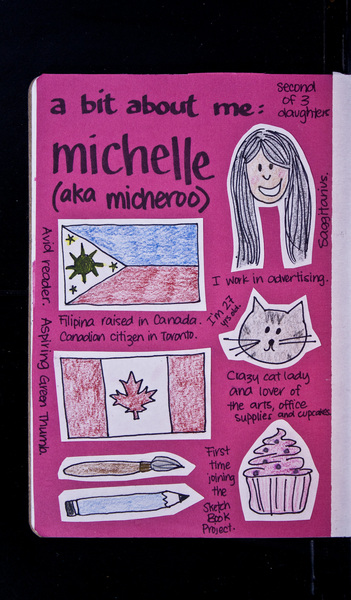 a bit about me:
second
of 3
daughters
michelle
(aka micheroo)
Saggitarius.
Avid reader. Aspiring Green Thumb.
I work in advertising.
Filipina raised in Canada.
Canadian citizen in Toronto.
I'm 27
yrs old.
Crazy cat lady
and lover of
the arts, office
supplies and cupcakes.
First
time
joining
the
Sketch
Book
Project.